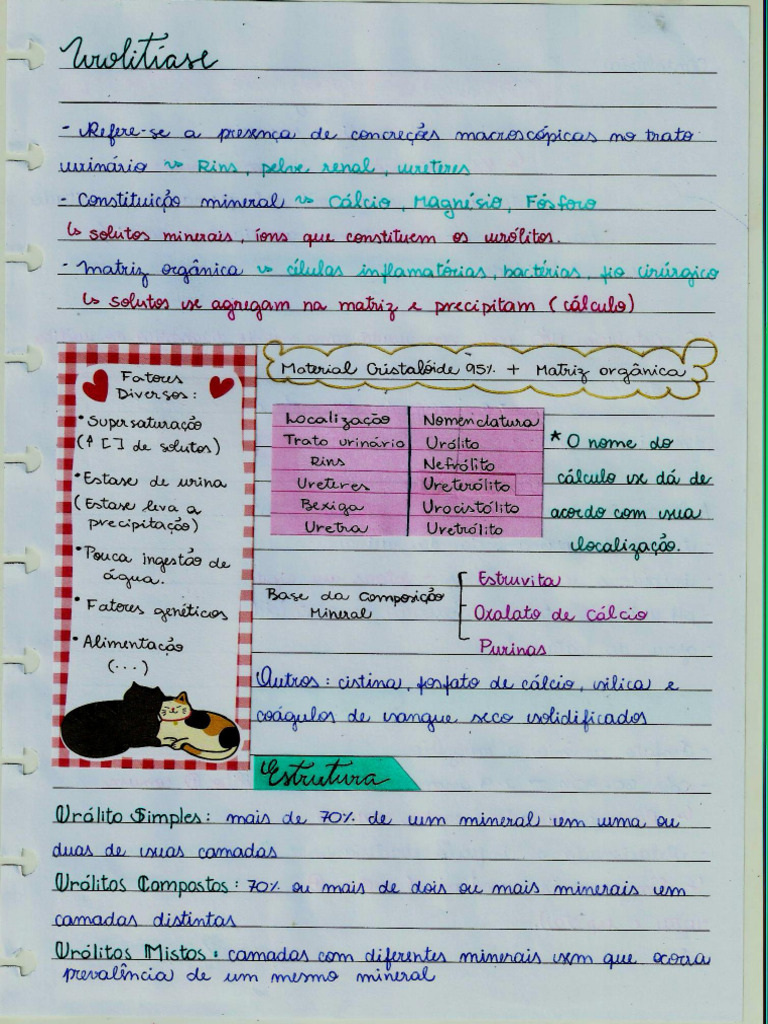 Urolitíase
- Refere-se a presença de concreções macroscópicas no trato
urinário ↝ Rins, pelve renal, ureteres
- Constituição mineral ↝ Cálcio, Magnésio, Fósforo
↳ solutos minerais, íons que constituem os urólitos.
- Matriz orgânica ↝ células inflamatórias, bactérias, fio cirúrgico
↳ solutos se agregam na matriz e precipitam (cálculo)
Fatores
Diversos:
• Supersaturação
(↑ [ ] de solutos)
• Estase de urina
(Estase leva a
precipitação)
• Pouca ingestão de
água.
• Fatores genéticos
• Alimentação
(...)
Material Cristalóide 95% + Matriz orgânica
Localização Nomenclatura
Trato urinário Urólito
Rins Nefrólito
Ureteres Ureterólito
Bexiga Urocistólito
Uretra Uretrólito
* O nome do
cálculo se dá de
acordo com sua
localização.
Base da Composição
Mineral
Estruvita
Oxalato de cálcio
Purinas
Outros: cistina, fosfato de cálcio, sílica e
coágulos de sangue seco solidificados
Estrutura
Urólito Simples: mais de 70% de um mineral em uma ou
duas de suas camadas
Urólitos Compostos: 70% ou mais de dois ou mais minerais em
camadas distintas
Urólitos Mistos: camadas com diferentes minerais sem que ocorra
prevalência de um mesmo mineral